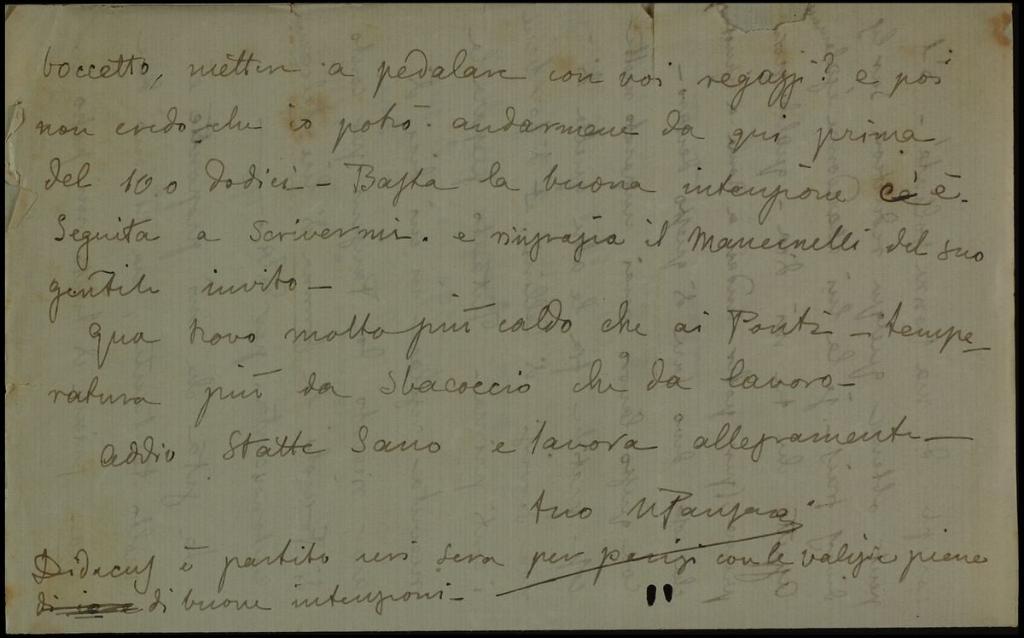 boccetto, metter a pedalare con voi regazzi? e poi
non credo che io potrò andarmene da qui prima
del 10 o dodici - Basta la buona intenzione c'è è.
Seguita a scrivermi. e ringrazia il Mancinelli del suo
gentile invito -
Qua trovo molto più caldo che ai Ponti - tempe-
ratura più da sbacoccio che da lavoro -
addio Statte Sano e lavora allegramente -
tuo
Didacus è partito ieri sera per parigi con le valigie piene
di di buone intenzioni -